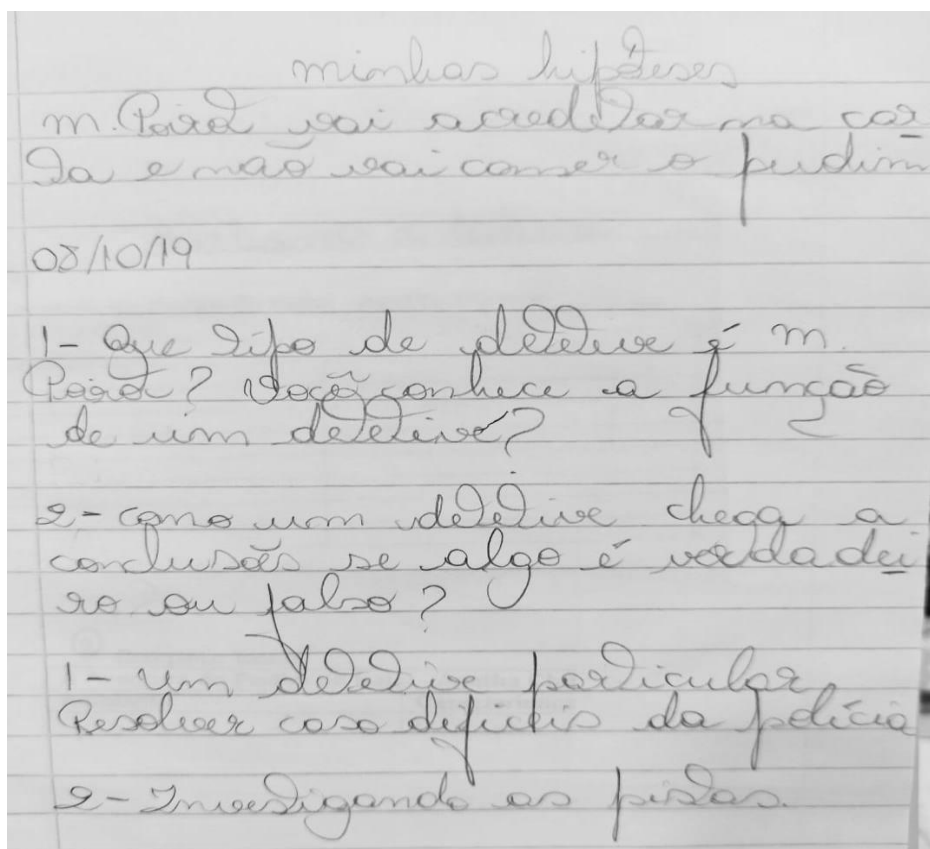 minhas hipóteses
m. Poirot vai acreditar na car
ta e não vai comer o pudim
08/10/19
1- Que tipo de detetive é m.
Poirot? Você conhece a função
de um detetive?
2- como um detetive chega a
conclusões se algo é verdadei
ro ou falso?
1- um detetive particular,
Resolver caso dificieis da polícia
2- Investigando as pistas.